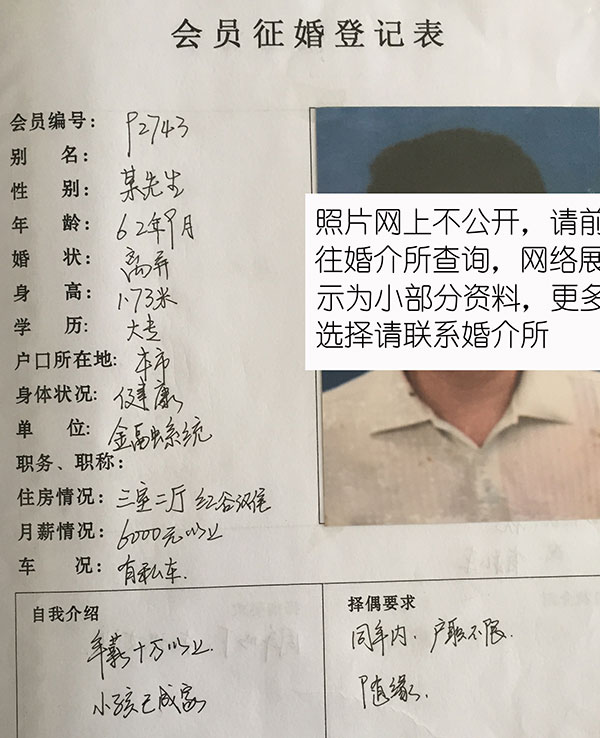 会员征婚登记表
会员编号: P2743
别 名: 某先生
性 别:
年 龄: 62年9月
婚 状: 离异
身 高: 1.73米
学 历: 大专
户口所在地: 本市
身体状况: 健康
单 位: 金融系统
职务、职称:
住房情况: 三室二厅 红谷
月薪情况: 6000元以上
车 况: 有私车.
照片网上不公开，请前
往婚介所查询，网络展
示为小部分资料，更多
选择请联系婚介所
自我介绍
年薪十万以上.
小孩已成家
择偶要求
同年内. 不限.
随缘.